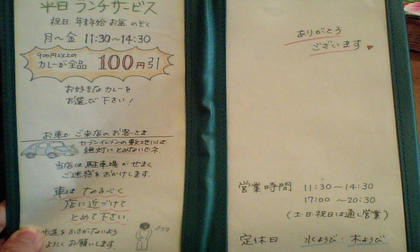 平日 ランチサービス
祝日、年末年始 のぞく
月〜金 11:30〜14:30
900円以上の
カレー全品 100円引
お好きなカレーを
お選び下さい！
お車で ご来店のお客さま
セブンイレブンの駐車場には
絶対に とめないで
当店は 駐車場 がせまく
ご迷惑を おかけします。
車は なるべく
店に近づけて
とめて 下さい。
ように お願いします。
ありがとう
ございます
営業時間 11:30〜14:30
17:00〜20:30
(土・日・祝日は通し営業)
定休日 水ようび 木ようび